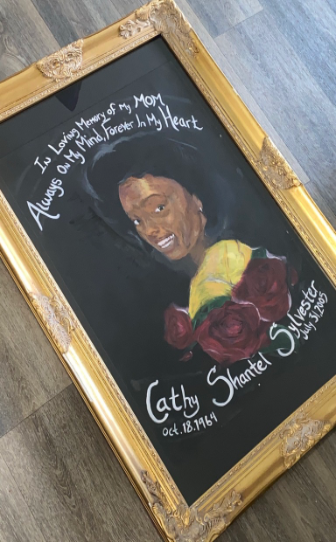 In Loving Memory of my MOM
Always On My Mind, Forever In My Heart
Cathy Shantel Sylvester
Oct.18.1964
July 31.2005